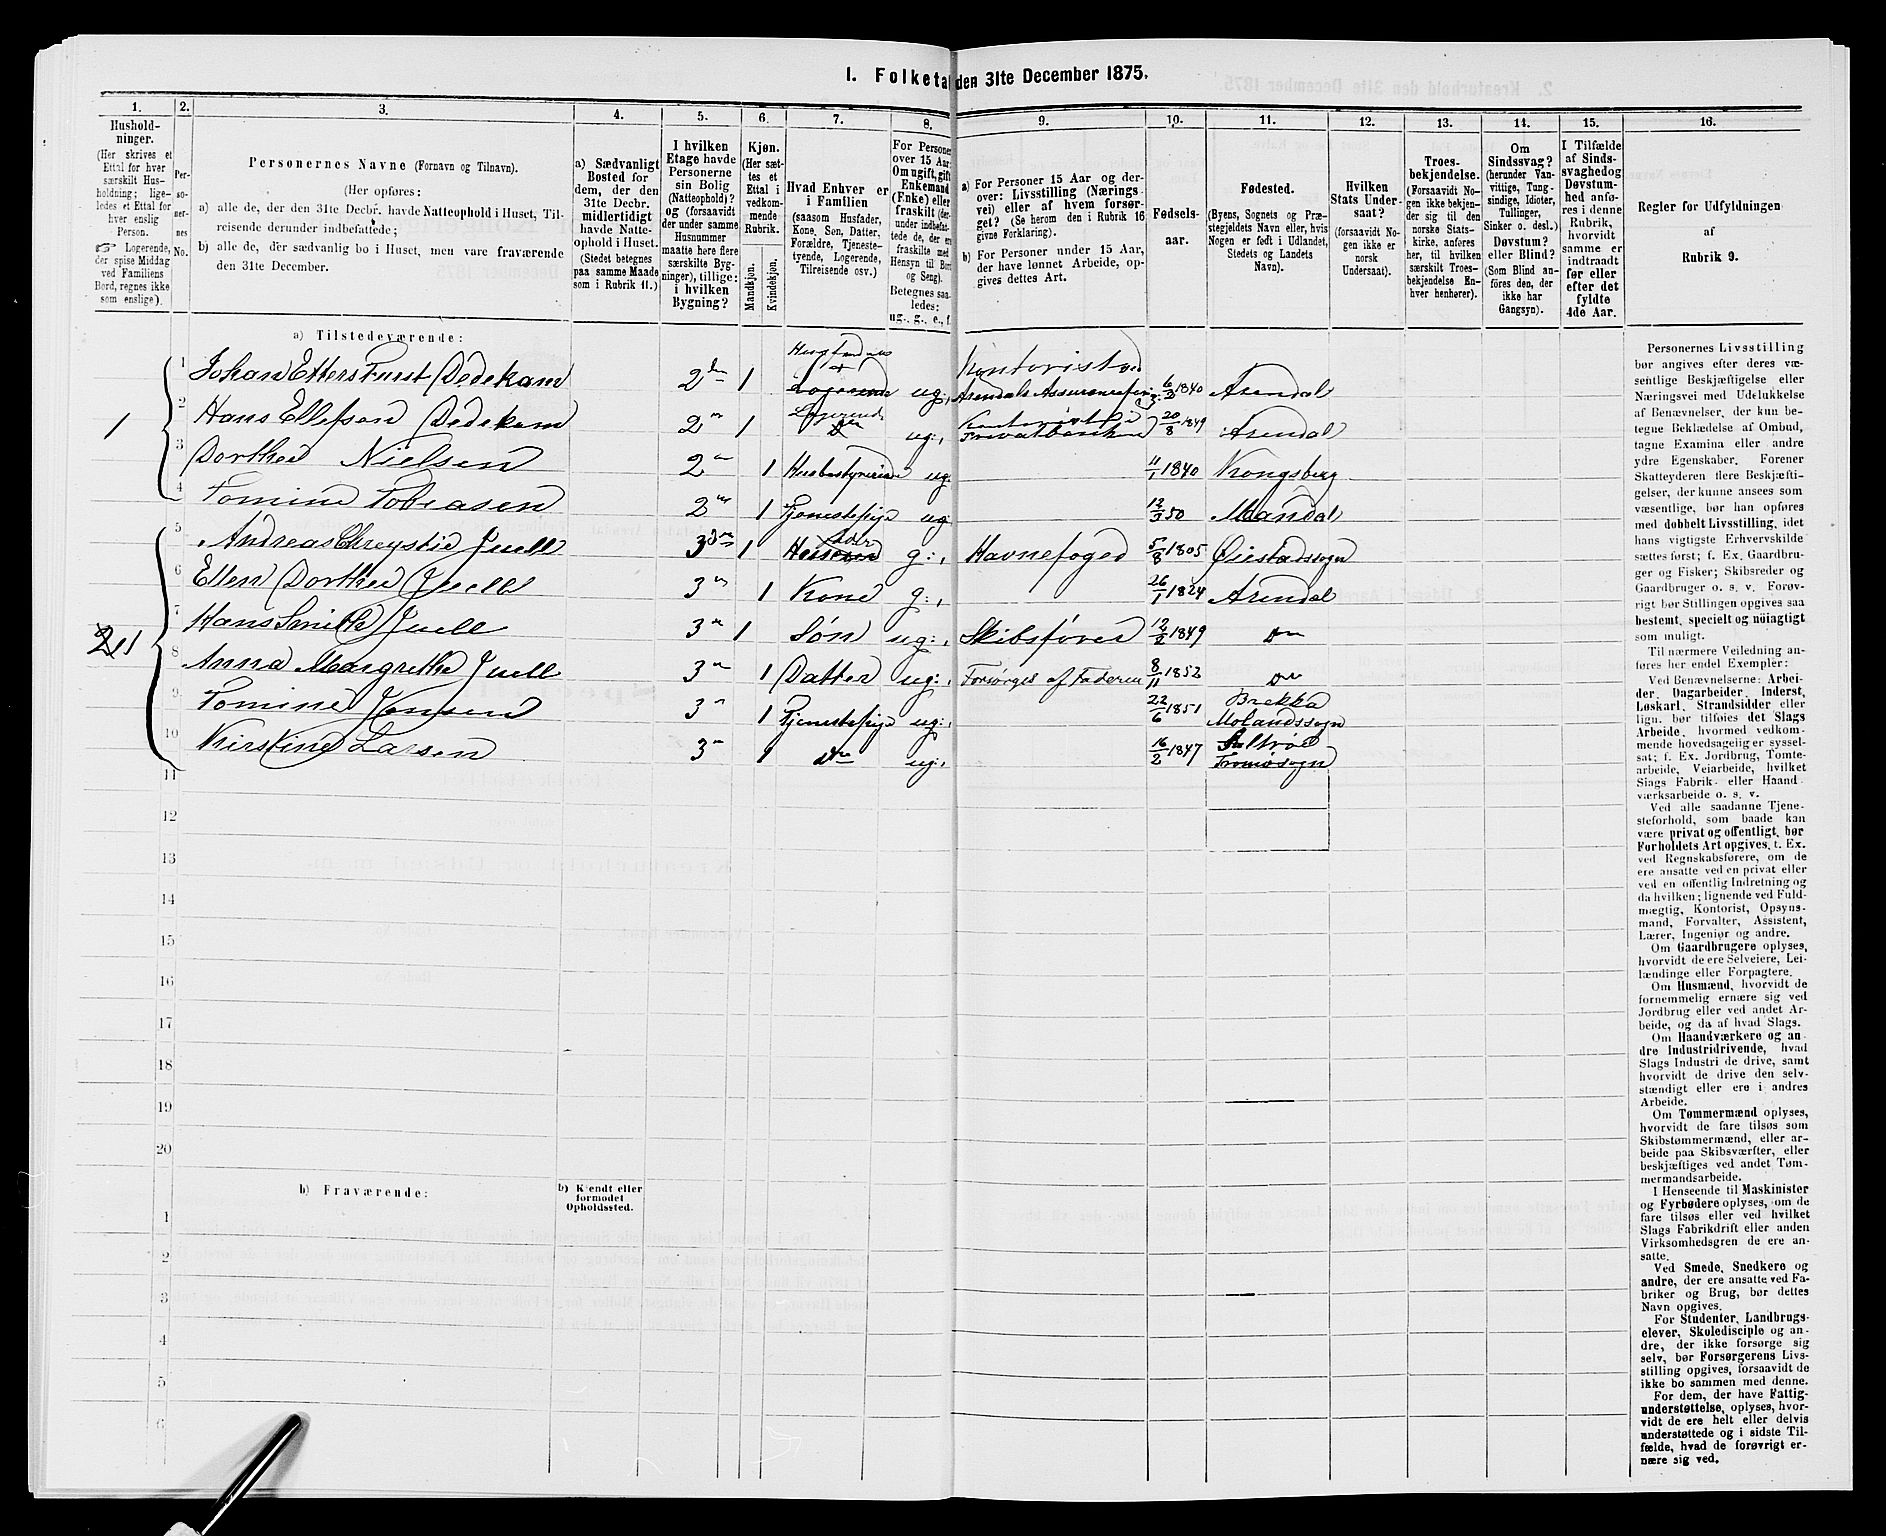 I. Folketal den 31te December 1875.
1. 2. 3. 4. 5. 6. 7. 8. 9. 10. 11. 12. 13. 14. 15. 16.
Hushold-
ninger.
(Her skrives et
Ettal for hver
særskilt Hus-
holdning; lige-
ledes et Ettal for
hver enslig
Person.
☞ Logerende,
der spise Middag
ved Familiens
Bord, regnes ikke
som enslige).
Per-
so-
ner-
nes
No.
Personernes Navne (Fornavn og Tilnavn).
(Her opføres:
a) alle de, der den 31te Decbr. havde Natteophold i Huset, Til-
reisende derunder indbefattede;
b) alle de, der sædvanlig bo i Huset, men vare fraværende
den 31te December.
a) Sædvanligt
Bosted for
dem, der den
31te Decbr.
midlertidigt
havde Natte-
ophold i Huset.
(Stedet betegnes
paa samme Maade
som i Rubrik 11.)
I hvilken
Etage havde
Personerne
sin Bolig
(Natteophold)?
og (forsaavidt
der under samme
Husnummer
maatte høre flere
særskilte Byg-
ninger), tillige:
i hvilken
Bygning?
Kjøn.
(Her sæt-
tes et
Ettal i
vedkom-
mende
Rubrik.
Mandkjøn.
Kvindekjøn.
Hvad Enhver er
i Familien
(saasom Husfader,
Kone, Søn, Datter,
Forældre, Tjeneste-
tyende, Logerende,
Tilreisende osv.)
For Personer
over 15 Aar:
Om ugift, gift,
Enkemand
(Enke) eller
fraskilt (der-
under indbefat-
tede de, der ere
fraskilte med
Hensyn til Bord
og Seng).
Betegnes saa-
ledes:
ug., g., e., f.
a) For Personer 15 Aar og der-
over: Livsstilling (Nærings-
vei) eller af hvem forsør-
get? (Se herom den i Rubrik 16
givne Forklaring).
b) For Personer under 15 Aar,
der have lønnet Arbeide, op-
gives dettes Art.
Fødsels-
aar.
Fødested.
(Byens, Sognets og Præ-
stegjeldets Navn eller, hvis
Nogen er født i Udlandet,
Stedets og Landets
Navn).
Hvilken
Stats Under-
saat?
(forsaavidt No-
gen ikke er
norsk
Undersaat).
Troes-
bekjendelse.
(Forsaavidt No-
gen ikke bekjen-
der sig til den
norske Stats-
kirke, anføres
her, til hvilken
særskilt Troes-
bekjendelse En-
hver henhører).
Om
Sindssvag?
(herunder Van-
vittige, Tung-
sindige, Idioter,
Tullinger,
Sinker o. desl.)
Døvstum?
eller Blind?
(Som Blind an-
føres den, der
ikke har
Gangsyn).
I Tilfælde
af Sinds-
svaghed og
Døvstum-
hed anfø-
res i denne
Rubrik,
hvorvidt
samme er
indtraadt
før eller
efter det
fyldte
4de Aar.
Regler for Udfyldningen
af
Rubrik 9.
a) Tilstedeværende:
1 1 Johan Etters Furst Dedekam 2den 1 Logerende ug., Kontorist ved Arendals 6/3 1840 Arendal
2 Hans Ellefsen Dedekam 2n 1 Logerende ug:, Kontorist i Privatbanken 20/8 1849 Arendal
3 Dorthea Nielsen 2n 1 Husbestyrerinde ug. 11/1 1840 Kongsberg
4 Tomine Tobiasen 2n 1 Tjenestepige ug. 12/3 50 Mandal
1 5 Andreas Chrystie Juell 3die 1 g:, Havnefoged 5/8 1805 Øiestadssogn
6 Ellen Dorthea Juell 3n 1 Kone g:, 26/1 1824 Arendal
7 Hans Smith Juell 3n 1 Søn ug:, Skibsfører 12/2 1849 do
8 Anna Margrethe Juell 3n 1 Datter ug:, Forsørges af Faderen 8/11 1852 do
9 Tomine Jensen 3n 1 Tjenestepige ug:, 22/6 1851 Brekka Molandssogn
10 Kirstine Larsen 3n 1 do ug:, 16/2 1847 Tromøsogn
11
12
13
14
15
16
17
18
19
20
b) Fraværende:
b) Kjendt eller
formodet
Opholdssted.
1
2
3
4
5
6
Personernes Livsstilling
bør angives efter deres væ-
sentlige Beskjæftigelse eller
Næringsvei med Udelukkelse
af Benævnelser, der kun be-
tegne Beklædelse af Ombud,
tagne Examina eller andre
ydre Egenskaber. Forener
Skatteyderen flere Beskjæfti-
gelser, der kunne ansees som
væsentlige, bør han opføres
med dobbelt Livsstilling, idet
hans vigtigste Erhvervskilde
sættes først; f. Ex. Gaardbru-
ger og Fisker; Skibsreder og
Gaardbruger o. s. v. Forøv-
rigt bør Stillingen opgives saa
bestemt, specielt og nøiagtigt
som muligt.
Til nærmere Veiledning an-
føres her endel Exempler:
Ved Benævnelserne: Arbei-
der, Dagarbeider, Inderst,
Løskarl, Strandsidder eller
lign. bør tilføies det Slags
Arbeide, hvormed vedkom-
mende hovedsagelig er syssel-
sat; f. Ex. Jordbrug, Tomte-
arbeide, Veiarbeide, hvilket
Slags Fabrik- eller Haand-
værksarbeide o. s. v.
Ved alle saadanne Tjene-
steforhold, som baade kan
være privat og offentligt, bør
Forholdets Art opgives, t. Ex.
ved Regnskabsførere, om de
ere ansatte ved en privat eller
ved en offentlig Indretning og
da hvilken; lignende ved Fuld-
mægtig, Kontorist, Opsyns-
mand, Forvalter, Assistent,
Lærer, Ingeniør og andre.
Om Gaardbrugere oplyses,
hvorvidt de ere Selveiere, Lei-
lændinge eller Forpagtere.
Om Husmænd, hvorvidt de
fornemmelig ernære sig ved
Jordbrug eller ved andet Ar-
beide, og da af hvad Slags.
Om Haandværkere og an-
dre Industridrivende, hvad
Slags Industri de drive, samt
hvorvidt de drive den selv-
stændigt eller ere i andres
Arbeide.
Om Tømmermænd oplyses,
hvorvidt de fare tilsøs som
Skibstømmermænd, eller ar-
beide paa Skibsværfter, eller
beskjæftiges ved andet Tøm-
mermandsarbeide.
I Henseende til Maskinister
og Fyrbødere oplyses, om de
fare tilsøs eller ved hvilket
Slags Fabrikdrift eller anden
Virksomhedsgren de ere an-
satte.
Ved Smede, Snedkere og
andre, der ere ansatte ved Fa-
briker og Brug, bør dettes
Navn opgives.
For Studenter, Landbrugs-
elever, Skoledisciple og an-
dre, der ikke forsørge sig
selv, bør Forsørgerens Livs-
stilling opgives, forsaavidt de
ikke bo sammen med denne.
For dem, der have Fattig-
understøttelse, oplyses, hvor-
vidt de ere helt eller delvis
understøttede og i sidste Til-
fælde, hvad de forøvrigt er-
nære sig ved.